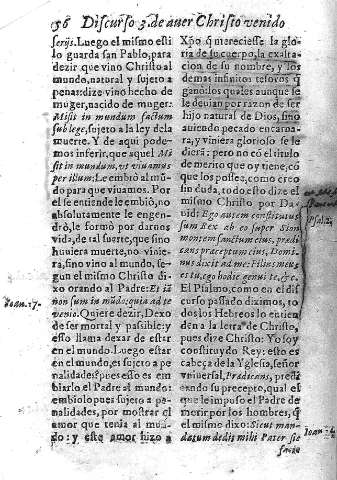 56 Discurso 3. de auer Christo venido
serijs. Luego el mismo esti
lo guarda san Pablo, para
dezir que vino Christo al
mundo, natural y sujeto a
penas: dize vino hecho de
muger, nacido de muger:
Misit in mundum factum
sub lege, sujeto a la ley dela
muerte. Y de aqui pode-
mos inferir, que aquel Mi
sit in mundum, vt viuamus
per illum: Le embió al mũ-
do para que viuamos. Por
el se entiende le embió, no
absolutamente le engen-
dró, le formó por darnos
vida, de tal suerte, que sino
huuiera muerte, no vinie-
ra, sino vino al mundo, se-
gun el mismo Christo di-
xo orando al Padre: Et iã
non sum in mũdo, quia ad te
venio. Quiere dezir, Dexo
de ser mortal y passible: y
esso llama dexar de estar
en el mundo. Luego estar
en el mundo, es sujeto a pe
nalidades, pues esso es em
biarlo el Padre al mundo:
embiolo pues sujeto a pe-
nalidades, por mostrar el
amor que tenia al mun-
do: y este amor hizo a
Ioan. 17.
Xp̃o q̃ mereciesse la glo-
ria de su cuerpo, la exalta-
cion de su nombre, y los
demas infinitos tesoros q̃
ganó: los quales aunque se
le deuian por razon de ser
hijo natural de Dios, sino
auiendo pecado encarna-
ra, y viniera glorioso se le
diera: pero no cõ el titulo
de merito que oy tiene, có
que los possee, como creo
sin duda, todo esto dize el
mismo Christo por Da-
uid: Ego autem constitutus
sum Rex ab eo super Sion
montem sanctum eius, prædi
cans præceptum eius, Domi-
nus dixit ad me: Filius meus
es tu, ego hodie genui te, &c.
El Psalmo, como en el dis
curso passado diximos, to
dos los Hebreos lo entien
den a la letra de Christo,
pues dize Christo: Yo soy
constituydo Rey: esto es
cabeça de la Yglesia, señor
vniuersal, Prædicans, predi
cando su precepto, qual es
que le impuso el Padre de
morir por los hombres, q̃
el mismo dixo: Sicut man-
datum dedit mihi Pater sic
facio
Psal. 2.
Ioan.